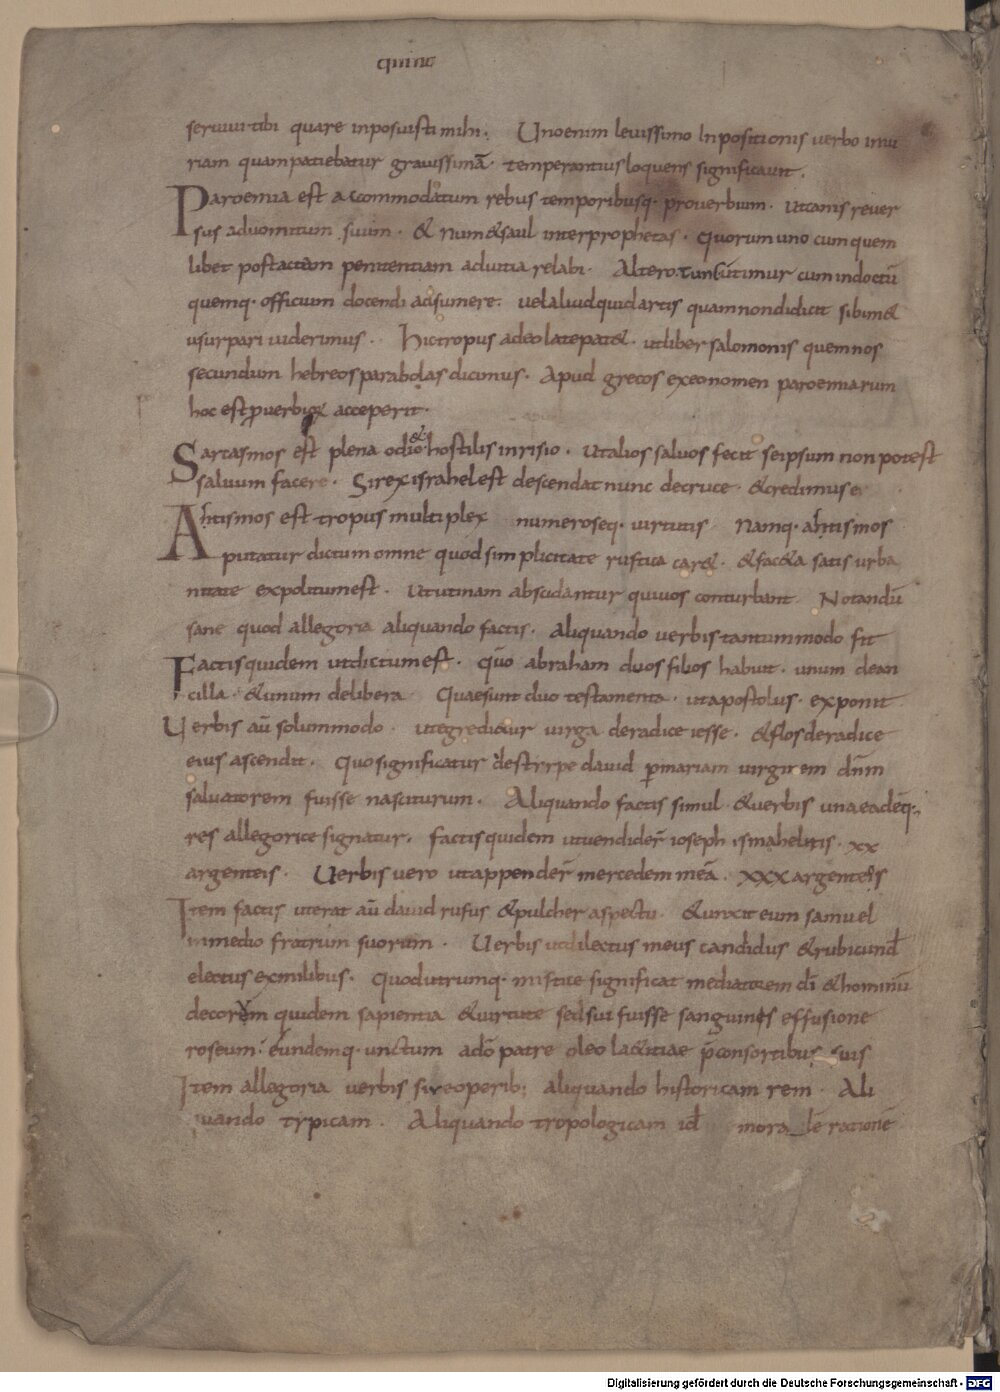 quinc
seruiui tibi quare inposuisti mihi. Uno enim leuissimo Inpositionis uerbo iniu
riam quam patiebatur grauissimā. temperantius loquens significauit.
Paroemia est accommodatum rebus temporibusq. prouerbium. ut canis reuer
sus ad uomitum suum. & num & saul inter prophetas. quorum uno cum quem
libet post actam penitentiam ad uitia relabi. Altero. tunc utimur cum indoctū
quemq. officium docendi adsumere. uel aliud quid artis quam non didicit sibim&
usurpari uiderimus. Hic tropus adeo late pat&. ut liber salomonis quem nos
secundum hebreos parabolas dicimus. Apud grecos ex eo nomen paroemiarum
hoc est puerbiorum acceperit.
Sarcasmos est plena odio & hostilis inrisio. ut alios saluos fecit se ipsum non potest
saluum facere. Si rex israhel est descendat nunc de cruce. & credimus ei
Antismos est tropus multiplex numeroseq. uirtutis Namq. antismos
putatur dictum omne quod simplicitate rustica car&. & fac&a satis urba
nitate expolitum est. Ut utinam abscidantur qui uos conturbant. Notandū
sane quod allegoria aliquando factis. aliquando uerbis tantum modo fit
Factis quidem ut dictum est. qūo abraham duos filios habuit. unum de an
cilla. & unum de libera Quae sunt duo testamenta. ut apostolus. exponit
Uerbis aū solummodo. ut egredi&ur uirga de radice iesse. & flos de radice
eius ascendit. Quo significatur de stirpe dauid p mariam uirginem dn̄m
saluatorem fuisse nasciturum. Aliquando factis simul & uerbis una eadēq.
res allegorice signatur. factis quidem ut uendider̄ ioseph ismahelitis. xx
argenteis. Uerbis uero ut appender̄ mercedem meā. xxx argenteis
Item factis ut erat aū dauid rufus & pulcher aspectu. & unxit eum samuel
in medio fratrum suorum. Uerbis ut dilectus meus candidus & rubicund̄
electus ex milibus. Quod utrumq. mistice significat mediatorem dī & hominū
decorem quidem sapientia & uirtute sed sui fuisse sanguinis effusione
roseum. eundemq. unctum a dō patre oleo la&itiae p̄ consortibus suis
Item allegoria uerbis siue operib; aliquando historicam rem. Ali
quando typicam. Aliquando tropologicam id̄ mora lē rationē
Digitalisierung gefördert durch die Deutsche Forschungsgemeinschaft - DFG